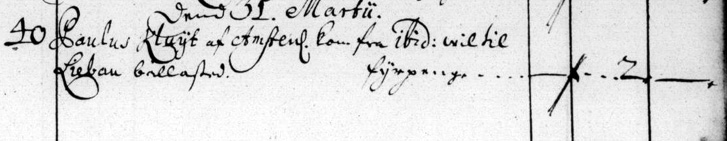 Dend 31. Martii.
40 Paulus Kuijt af Amsterd. kom fra ibid: wil til
Liebau bellasted. fyrpenge . . . . — . . . 2 . —